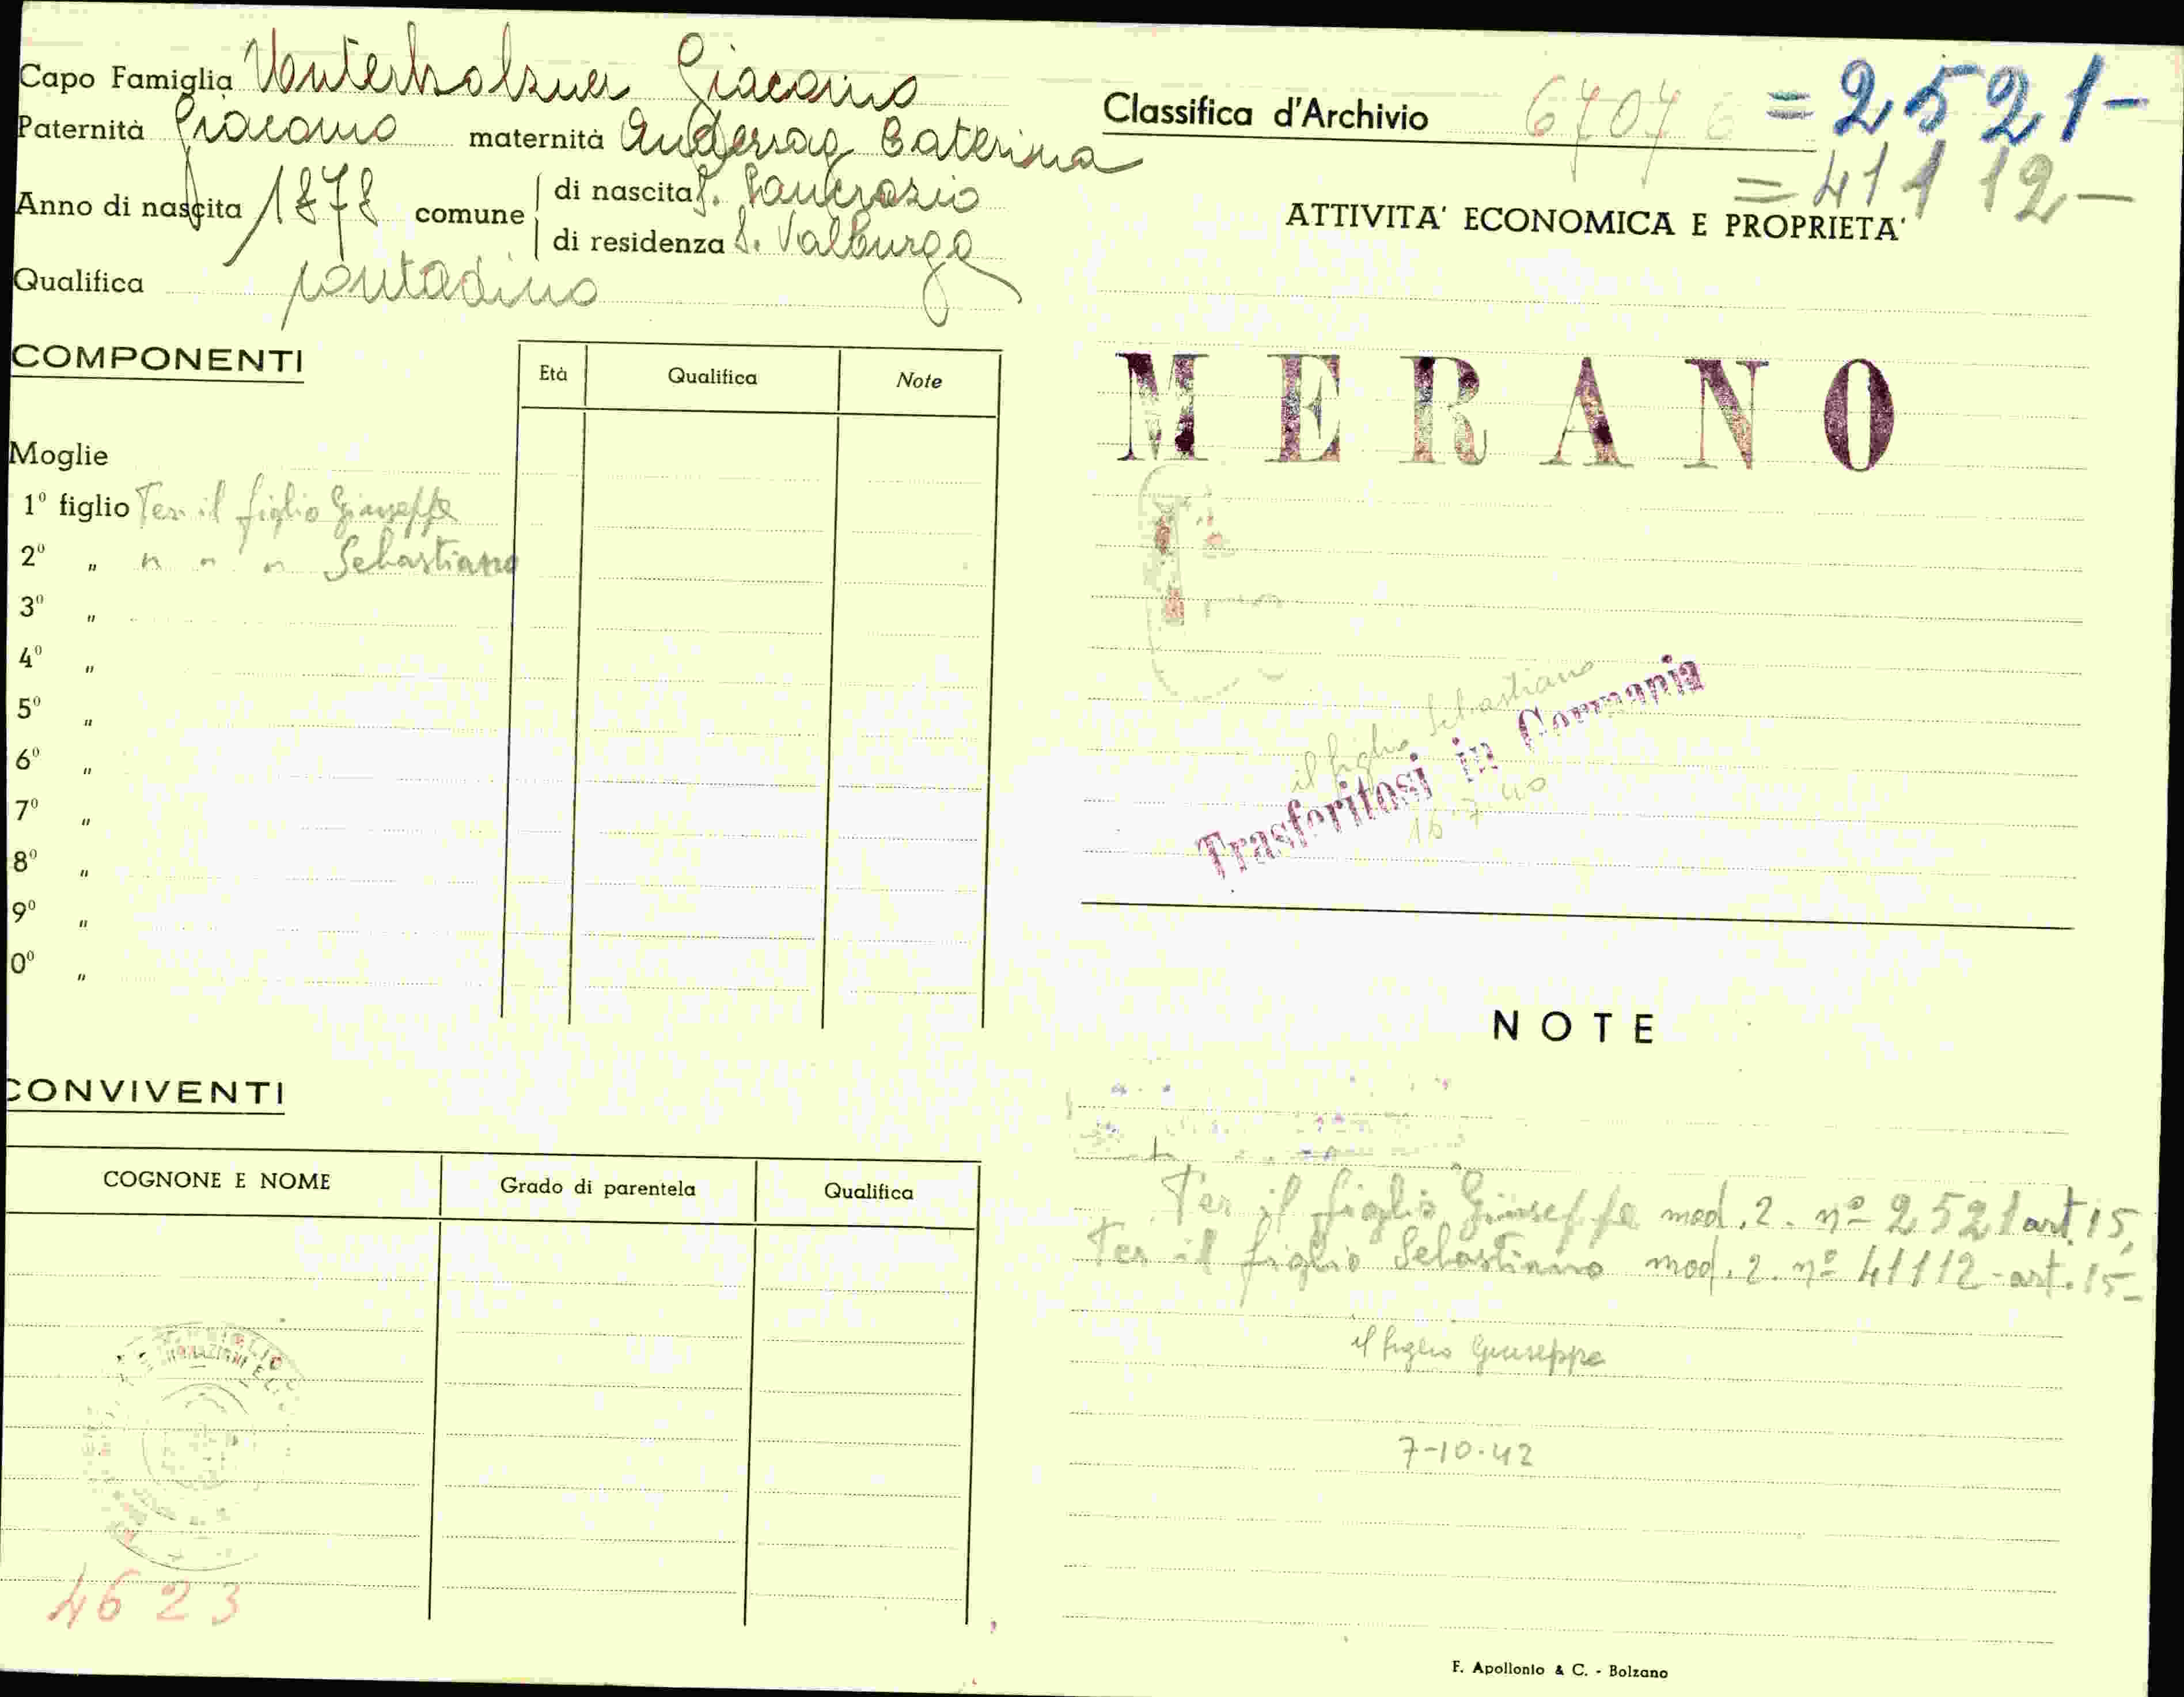 Capo Famiglia Unterholzner Giacomo
Paternità Giacomo maternità Andersag Caterina
Anno di nascita 1878 comune di nascita S. Pancrazio
di residenza S. Valburga
Qualifica contadino
COMPONENTI
Età Qualifica Note
Moglie
1º figlio Per il figlio Giuseppe
2º " " " " Sebastiano
3º "
4º "
5º "
6º "
7º "
8º "
9º "
0º "
CONVIVENTI
COGNONE E NOME Grado di parentela Qualifica
4623
Classifica d'Archivio 67076 = 2521-
= 41112-
ATTIVITA' ECONOMICA E PROPRIETA'
MERANO
il figlio Sebastiano
Trasferitosi in Germania
16-7-40
NOTE
Per il figlio Giuseppe mod. 2. nº 2521 art. 15,
Per il figlio Sebastiano mod. 2. nº 41112 - art. 15-
il figlio Giuseppe
7-10-42
F. Apollonio & C. - Bolzano